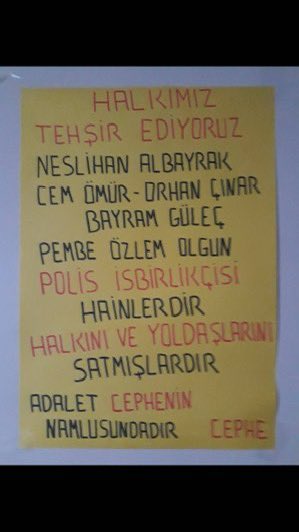 HALKIMIZ
TEHŞİR EDİYORUZ
NESLİHAN ALBAYRAK
CEM ÖMÜR-ORHAN ÇINAR
BAYRAM GÜLEÇ
PEMBE ÖZLEM OLGUN
POLİS İSBİRLİKÇİSİ
HAİNLERDİR
HALKINI VE YOLDAŞLARINI
SATMIŞLARDIR
ADALET CEPHENİN
NAMLUSUNDADIR CEPHE